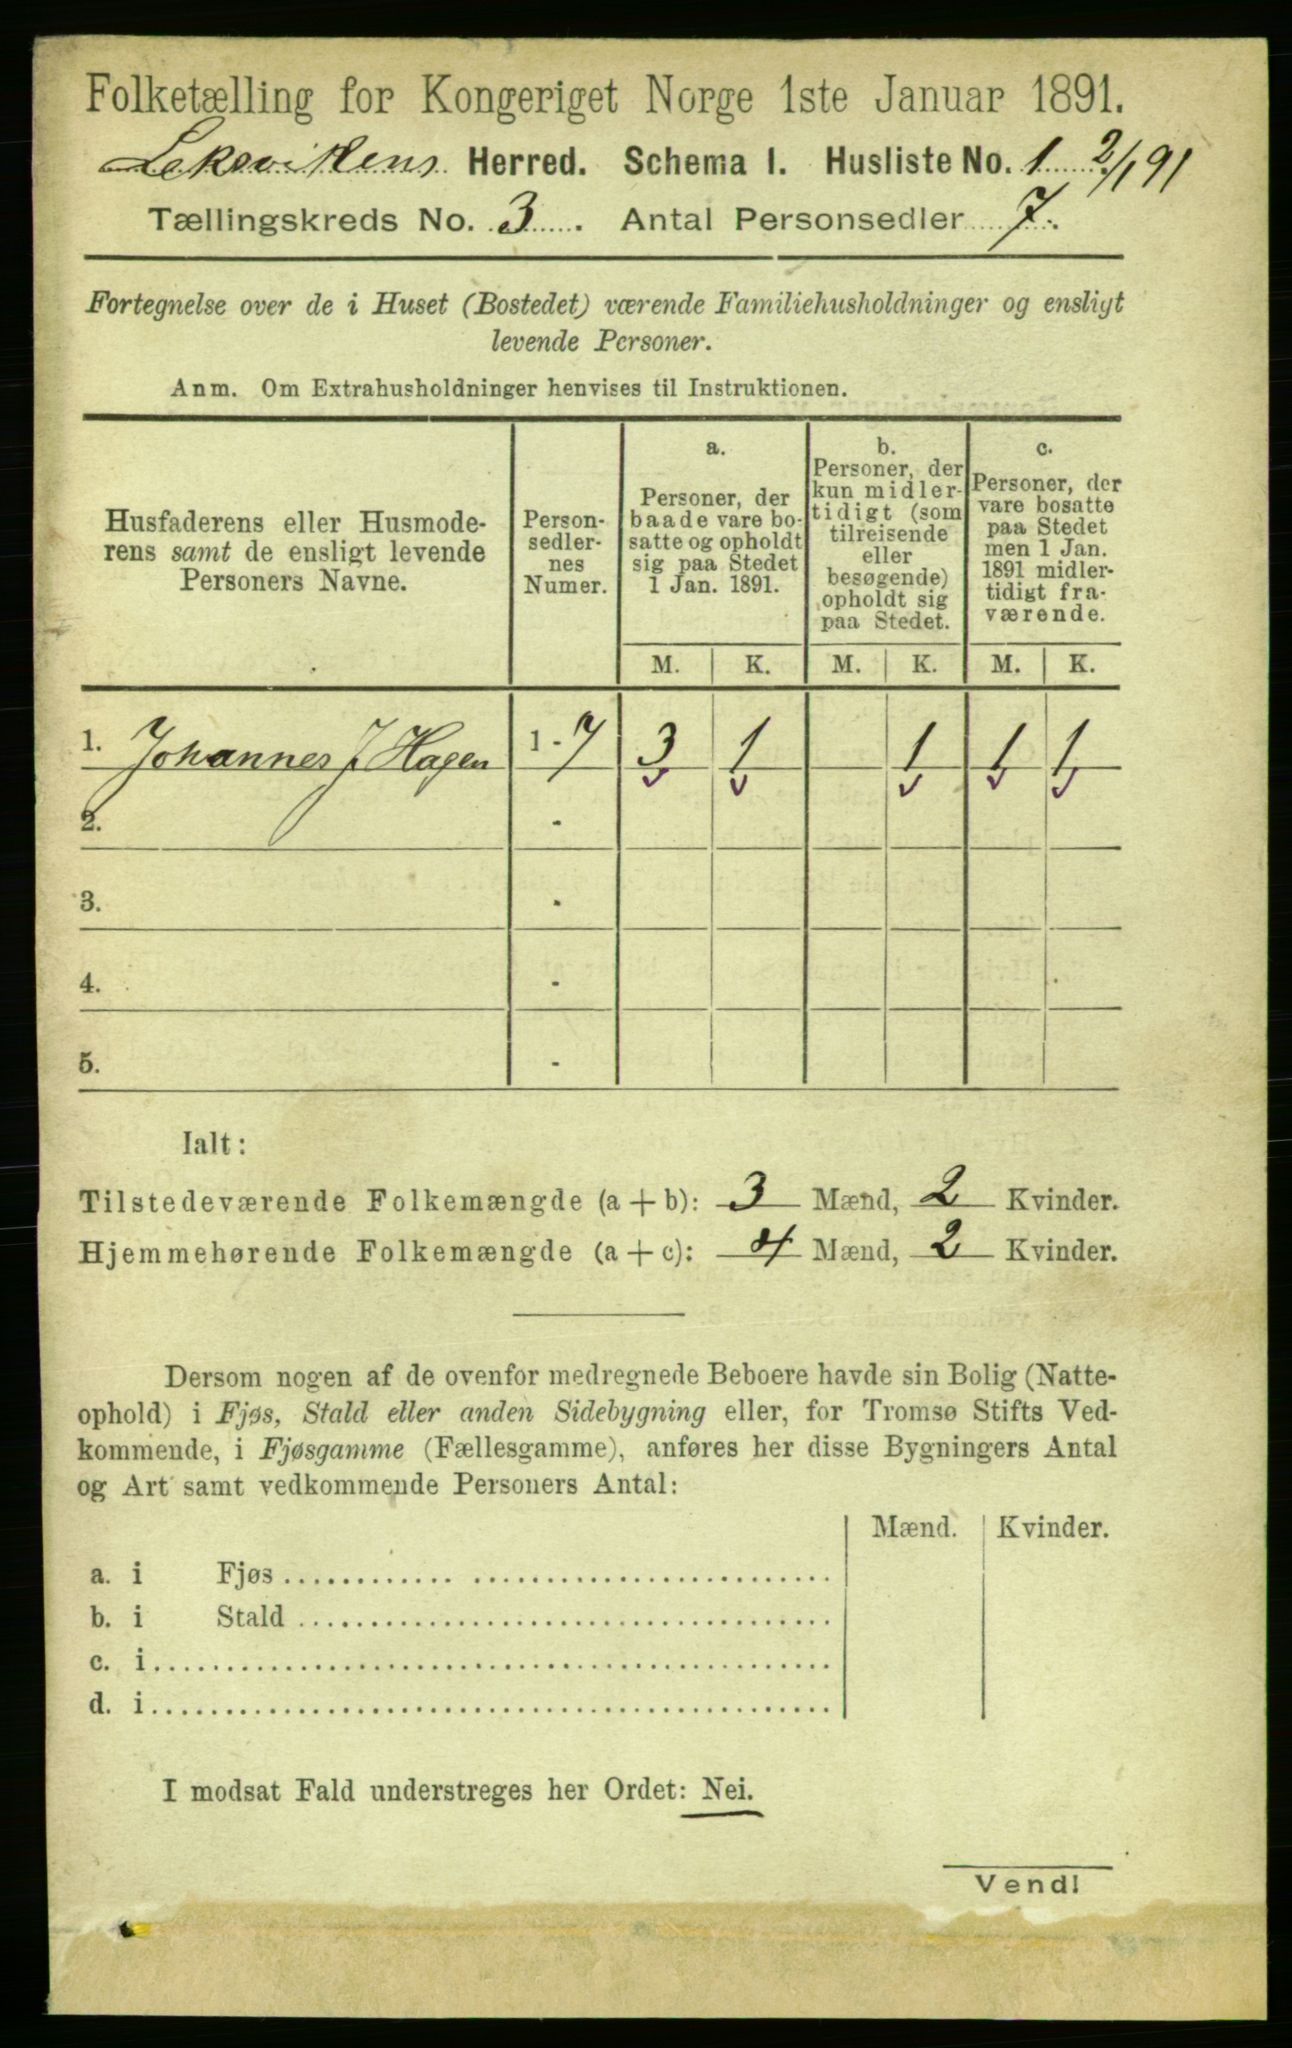 Folketælling for Kongeriget Norge 1ste Januar 1891.
Leksvikens Herred. Schema I. Husliste No. 1 2/1 91
Tællingskreds No. 3. Antal Personsedler 7.
Fortegnelse over de i Huset (Bostedet) værende Familiehusholdninger og ensligt
levende Personer.
Anm. Om Extrahusholdninger henvises til Instruktionen.
Husfaderens eller Husmode-
rens samt de ensligt levende
Personers Navne.
Person-
sedler-
nes
Numer.
a.
Personer, der
baade vare bo-
satte og opholdt
sig paa Stedet
1 Jan. 1891.
b.
Personer, der
kun midler-
tidigt (som
tilreisende
eller
besøgende)
opholdt sig
paa Stedet.
c.
Personer, der
vare bosatte
paa Stedet
men 1 Jan.
1891 midler-
tidigt fra-
værende.
M. K. M. K. M. K.
1. Johannes J Hagen 1 - 7 3 1 1 1 1
2. -
3. -
4. -
5. -
Ialt:
Tilstedeværende Folkemængde (a + b): 3 Mænd, 2 Kvinder.
Hjemmehørende Folkemængde (a + c): 4 Mænd, 2 Kvinder.
Dersom nogen af de ovenfor medregnede Beboere havde sin Bolig (Natte-
ophold) i Fjøs, Stald eller anden Sidebygning eller, for Tromsø Stifts Ved-
kommende, i Fjøsgamme (Fællesgamme), anføres her disse Bygningers Antal
og Art samt vedkommende Personers Antal:
Mænd. Kvinder.
a. i Fjøs
b. i Stald
c. i
d. i
I modsat Fald understreges her Ordet: Nei.
Vend!